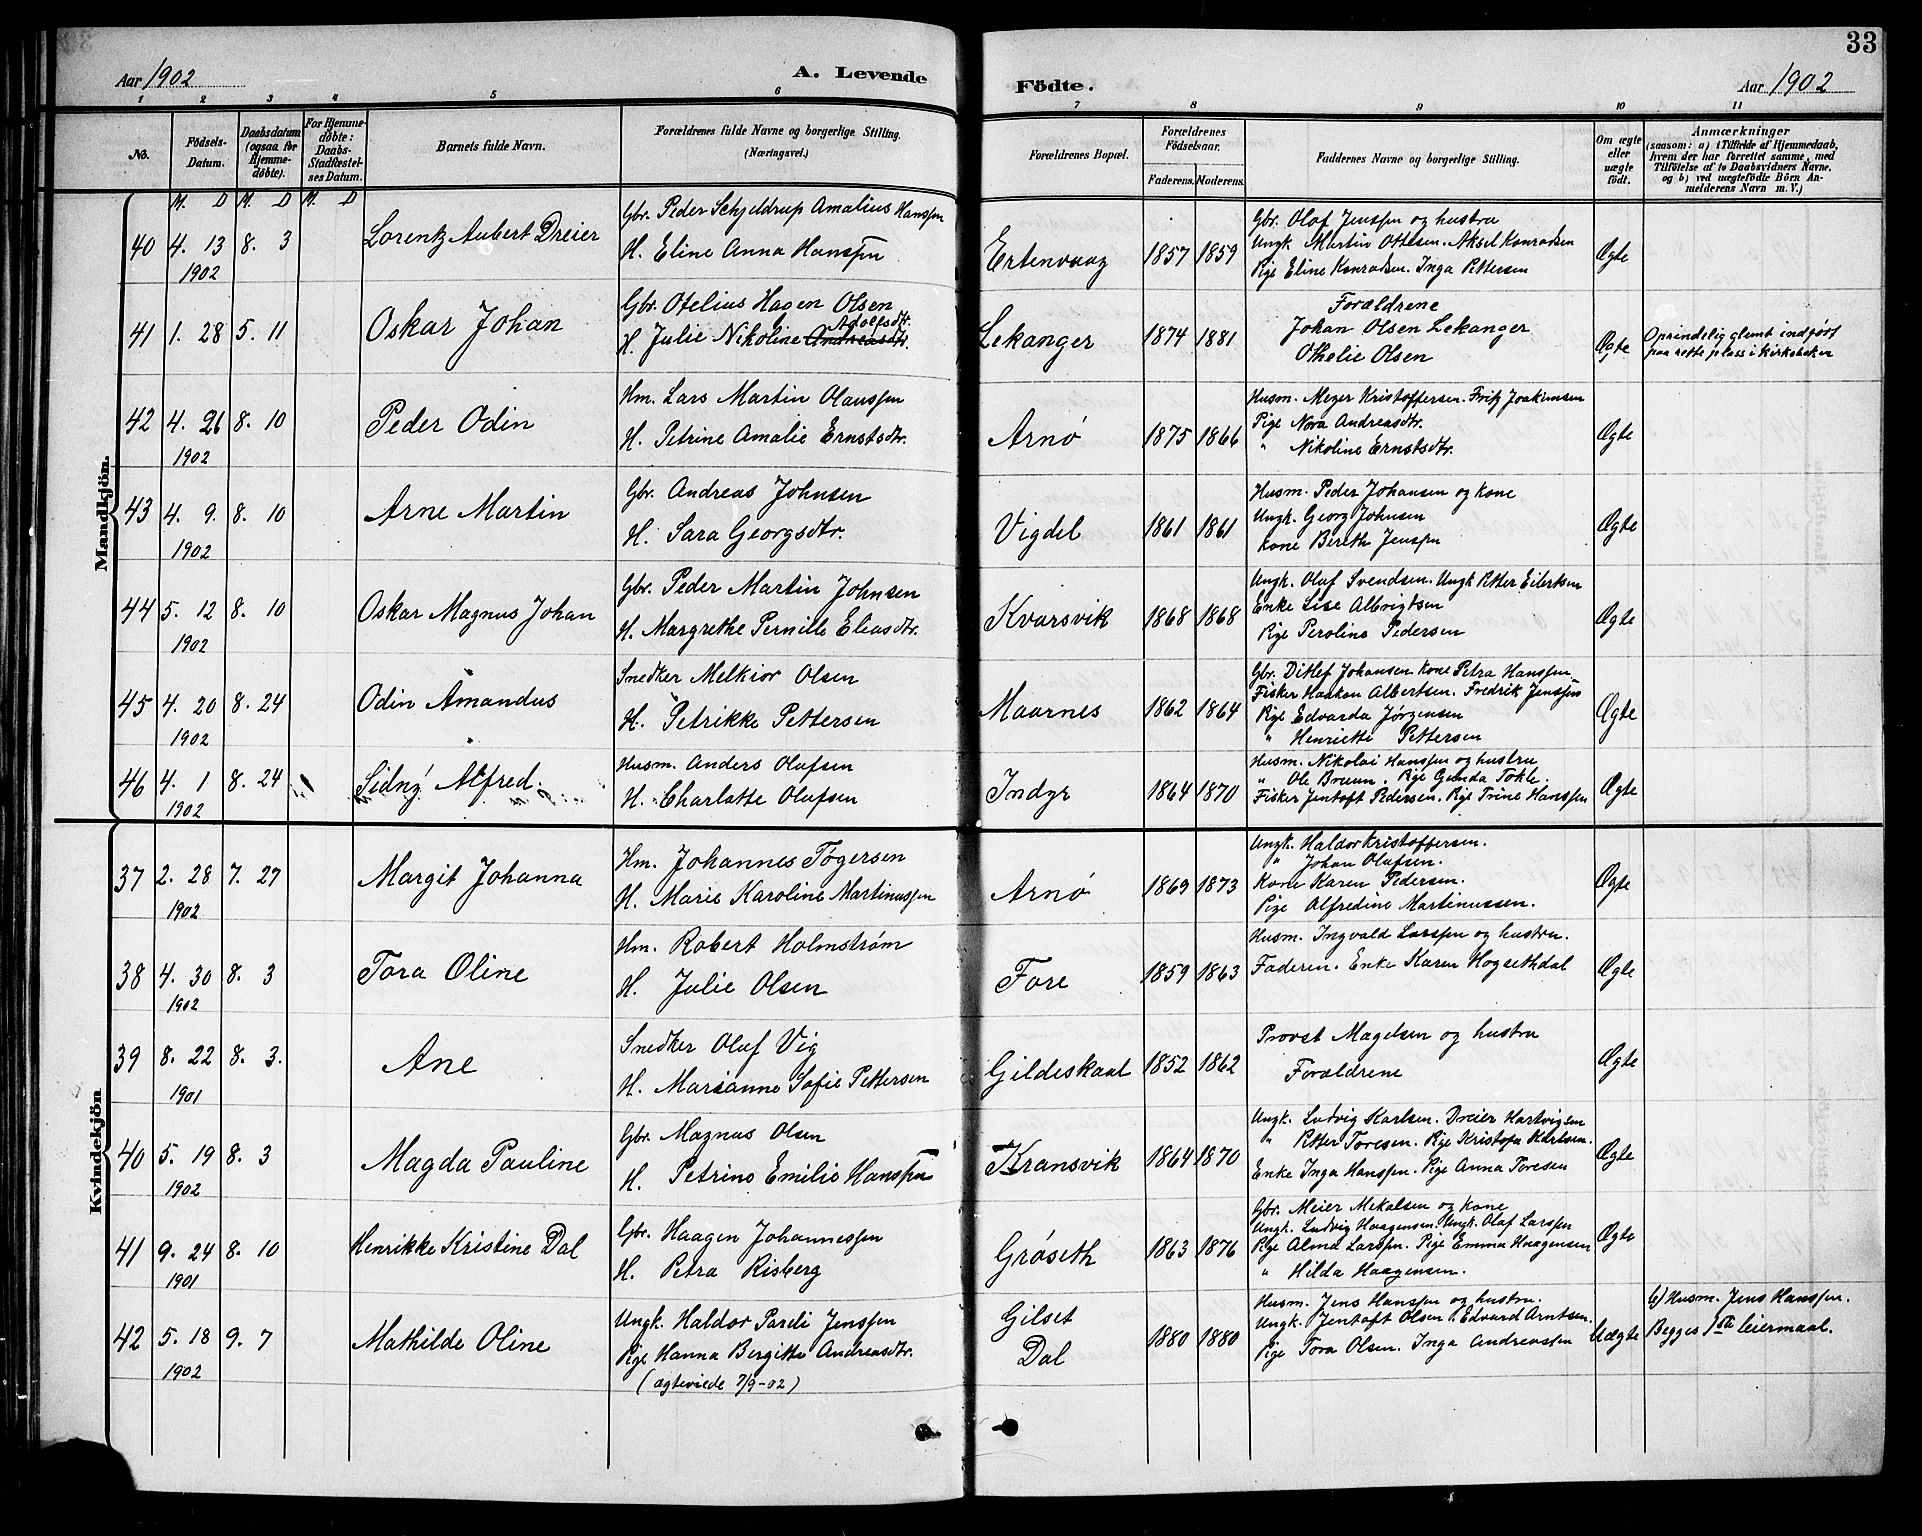 33
Aar 1902
A. Levende
Födte.
Aar 1902
1 2 3 4 5 6 7 8 9 10 11
No.
Födsels-Datum.
Daabsdatum (ogsaa for Hjemmedöbte).
For Hjemmedöbte: Daabs-Stadfæstelses Datum.
Barnets fulde Navn.
Forældrenes fulde Navne og borgerlige Stilling.
(Næringsvei.)
Forældrenes Bopæl.
Forældrenes Födselsaar.
Faderens. Moderens.
Faddernes Navne og borgerlige Stilling.
Om ægte eller uægte födt.
Anmærkninger
(saasom: a) i Tilfælde af Hjemmedaab, hvem der har forrettet samme, med Tilföielse af to Daabsvidners Navne, og b) ved uægtefödte Börn Anmelderens Navn m. V.)
M. D M. D M. D
Mandkjön.
40 4. 13 1902 8. 3 Lorentz Aubert Dreier
Gbr. Peder Schjeldrup Amalius Hanssen
H. Eline Anna Hanssen
Ertenvaag 1857 1859
Gbr. Olaf Jenssen og hustru
Ungk. Martin Ottesen. Aksel Konradsen
Pige Eline Konradsen. Inga Pettersen
Ægte
41 1. 28 5. 11 Oskar Johan
Gbr. Otelius Hagen Olsen
H. Julie Nikoline Andreasdtr. Adolfsdtr.
Lekanger 1874 1881
Forældrene
Johan Olsen Lekanger
Othelie Olsen
Ægte
Oprindelig glemt indført
paa rette plass i kirkeboken
42 4. 26 1902 8. 10 Peder Odin
Hm. Lars Martin Olaussen
H. Petrine Amalie Ernstsdtr.
Arnø 1875 1866
Husm. Meyer Kristoffersen. Fritz Joakimsen
Pige Nora Andreasdtr.
" Nikoline Ernstsdtr.
Ægte
43 4. 9. 1902 8. 10 Arne Martin
Gbr. Andreas Johnsen
H. Sara Georgsdtr.
Vigdel 1861 1861
Husm. Peder Johansen og kone
Ungk. Georg Johnsen
Kone Bereth Jenssen
Ægte
44 5. 12 1902 8. 10 Oskar Magnus Johan
Gbr. Peder Martin Johnsen
H. Margrethe Pernille Eliasdtr.
Kvarsvik 1868 1868
Ungk. Olaf Svendsen. Ungk Petter Eilertsen
Enke Lise Albrigtsen
Pige Peroline Pedersen
Ægte
45 4. 20 1902 8. 24 Odin Amandus
Snedker Melkior Olsen
H. Petrikke Pettersen
Maarnes 1862 1864
Gbr. Ditlef Johansen. Kone Petra Hanssen
Fisker Haakon Albertsen. Fredrik Jenssen
Pige Edvarda Jørgensen
" Henriette Pettersen
Ægte
46 4. 1 1902 8. 24 Sidny Alfred.
Husm. Anders Olafsen
H. Charlotte Olafsen
Indyr 1864 1870
Husm. Nikolai Hanssen og hustru
" Ole Bruun. Pige Gunda Tokle.
Fisker Jentoft Pedersen. Pige Trine Hanssen
Ægte
Kvindekjön
37 2. 28 1902 7. 27 Margit Johanna
Hm. Johannes Tøgersen
H. Marie Karoline Martinussen
Arnø 1869 1873
Ungk. Haldor Kristoffersen.
" Johan Olafsen.
Kone Karen Pedersen.
Pige Alfredine Martinussen.
Ægte
38 4. 30 1902 8. 3 Tora Oline
Hm. Robert Holmstrøm
H. Julie Olsen
Fore 1859 1863
Husm. Ingvald Larssen og hustru.
Faderen. Enke Karen Hogsethdal
Ægte
39 8. 22 1901 8. 3. Ane
Snedker Olaf Vig
H. Marianne Sofie Pettersen
Gildeskaal 1852 1862
Provst Magelsen og hustru
Forældrene
Ægte
40 5. 19 1902 8. 3 Magda Pauline
Gbr. Magnus Olsen
H. Petrine Emilie Hanssen
Kransvik 1864 1870
Ungk. Ludvig Karlsen. Dreier Hartvigsen
" Petter Toresen. Pige Kristofa Karlsen.
Enke Inga Hanssen. Pige Anna Toresen
Ægte
41 9. 24 1901 8. 10 Henrikke Kristine Dal
Gbr. Haagen Johannessen
H. Petra Risberg
Grøseth 1863 1876
Gbr. Meier Mekalsen og Kone
Ungk. Ludvig Haagensen. Ungk. Olaf Larssen
Pige Alma Larssen. Pige Emma Haagensen
" Hilda Haagensen.
Ægte
42 5. 18 1902 9. 7 Mathilde Oline
Ungk. Haldor Pareli Jenssen
Pige Hanna Bergitte Andreasdtr.
(ægteviede 7/9-02)
Gilset
Dal
1880 1880
Husm. Jens Hanssen og hustru.
Ungk. Jentoft Olsen. Edvard Arntsen.
Pige Tora Olsen. Inga Andreassen
Uægte
b) Husm. Jens Hanssen.
Begges 1ste leiermaal.